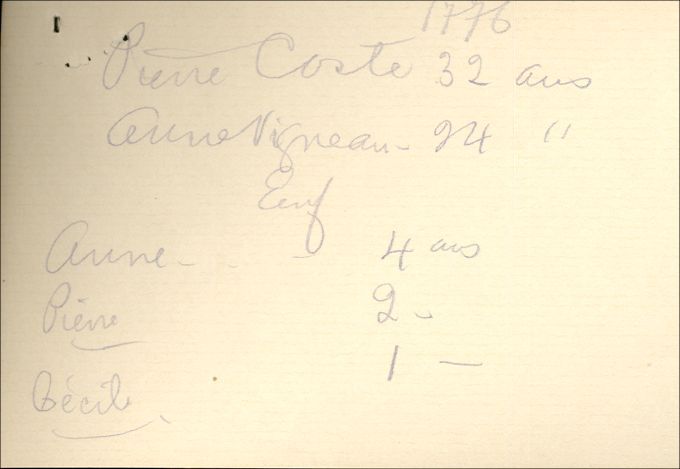 1776
Pierre Coste 32 ans
Anne Vigneau - 24 "
Enf
Anne - - - 4 ans
Pierre 2 -
1 -
Cécile